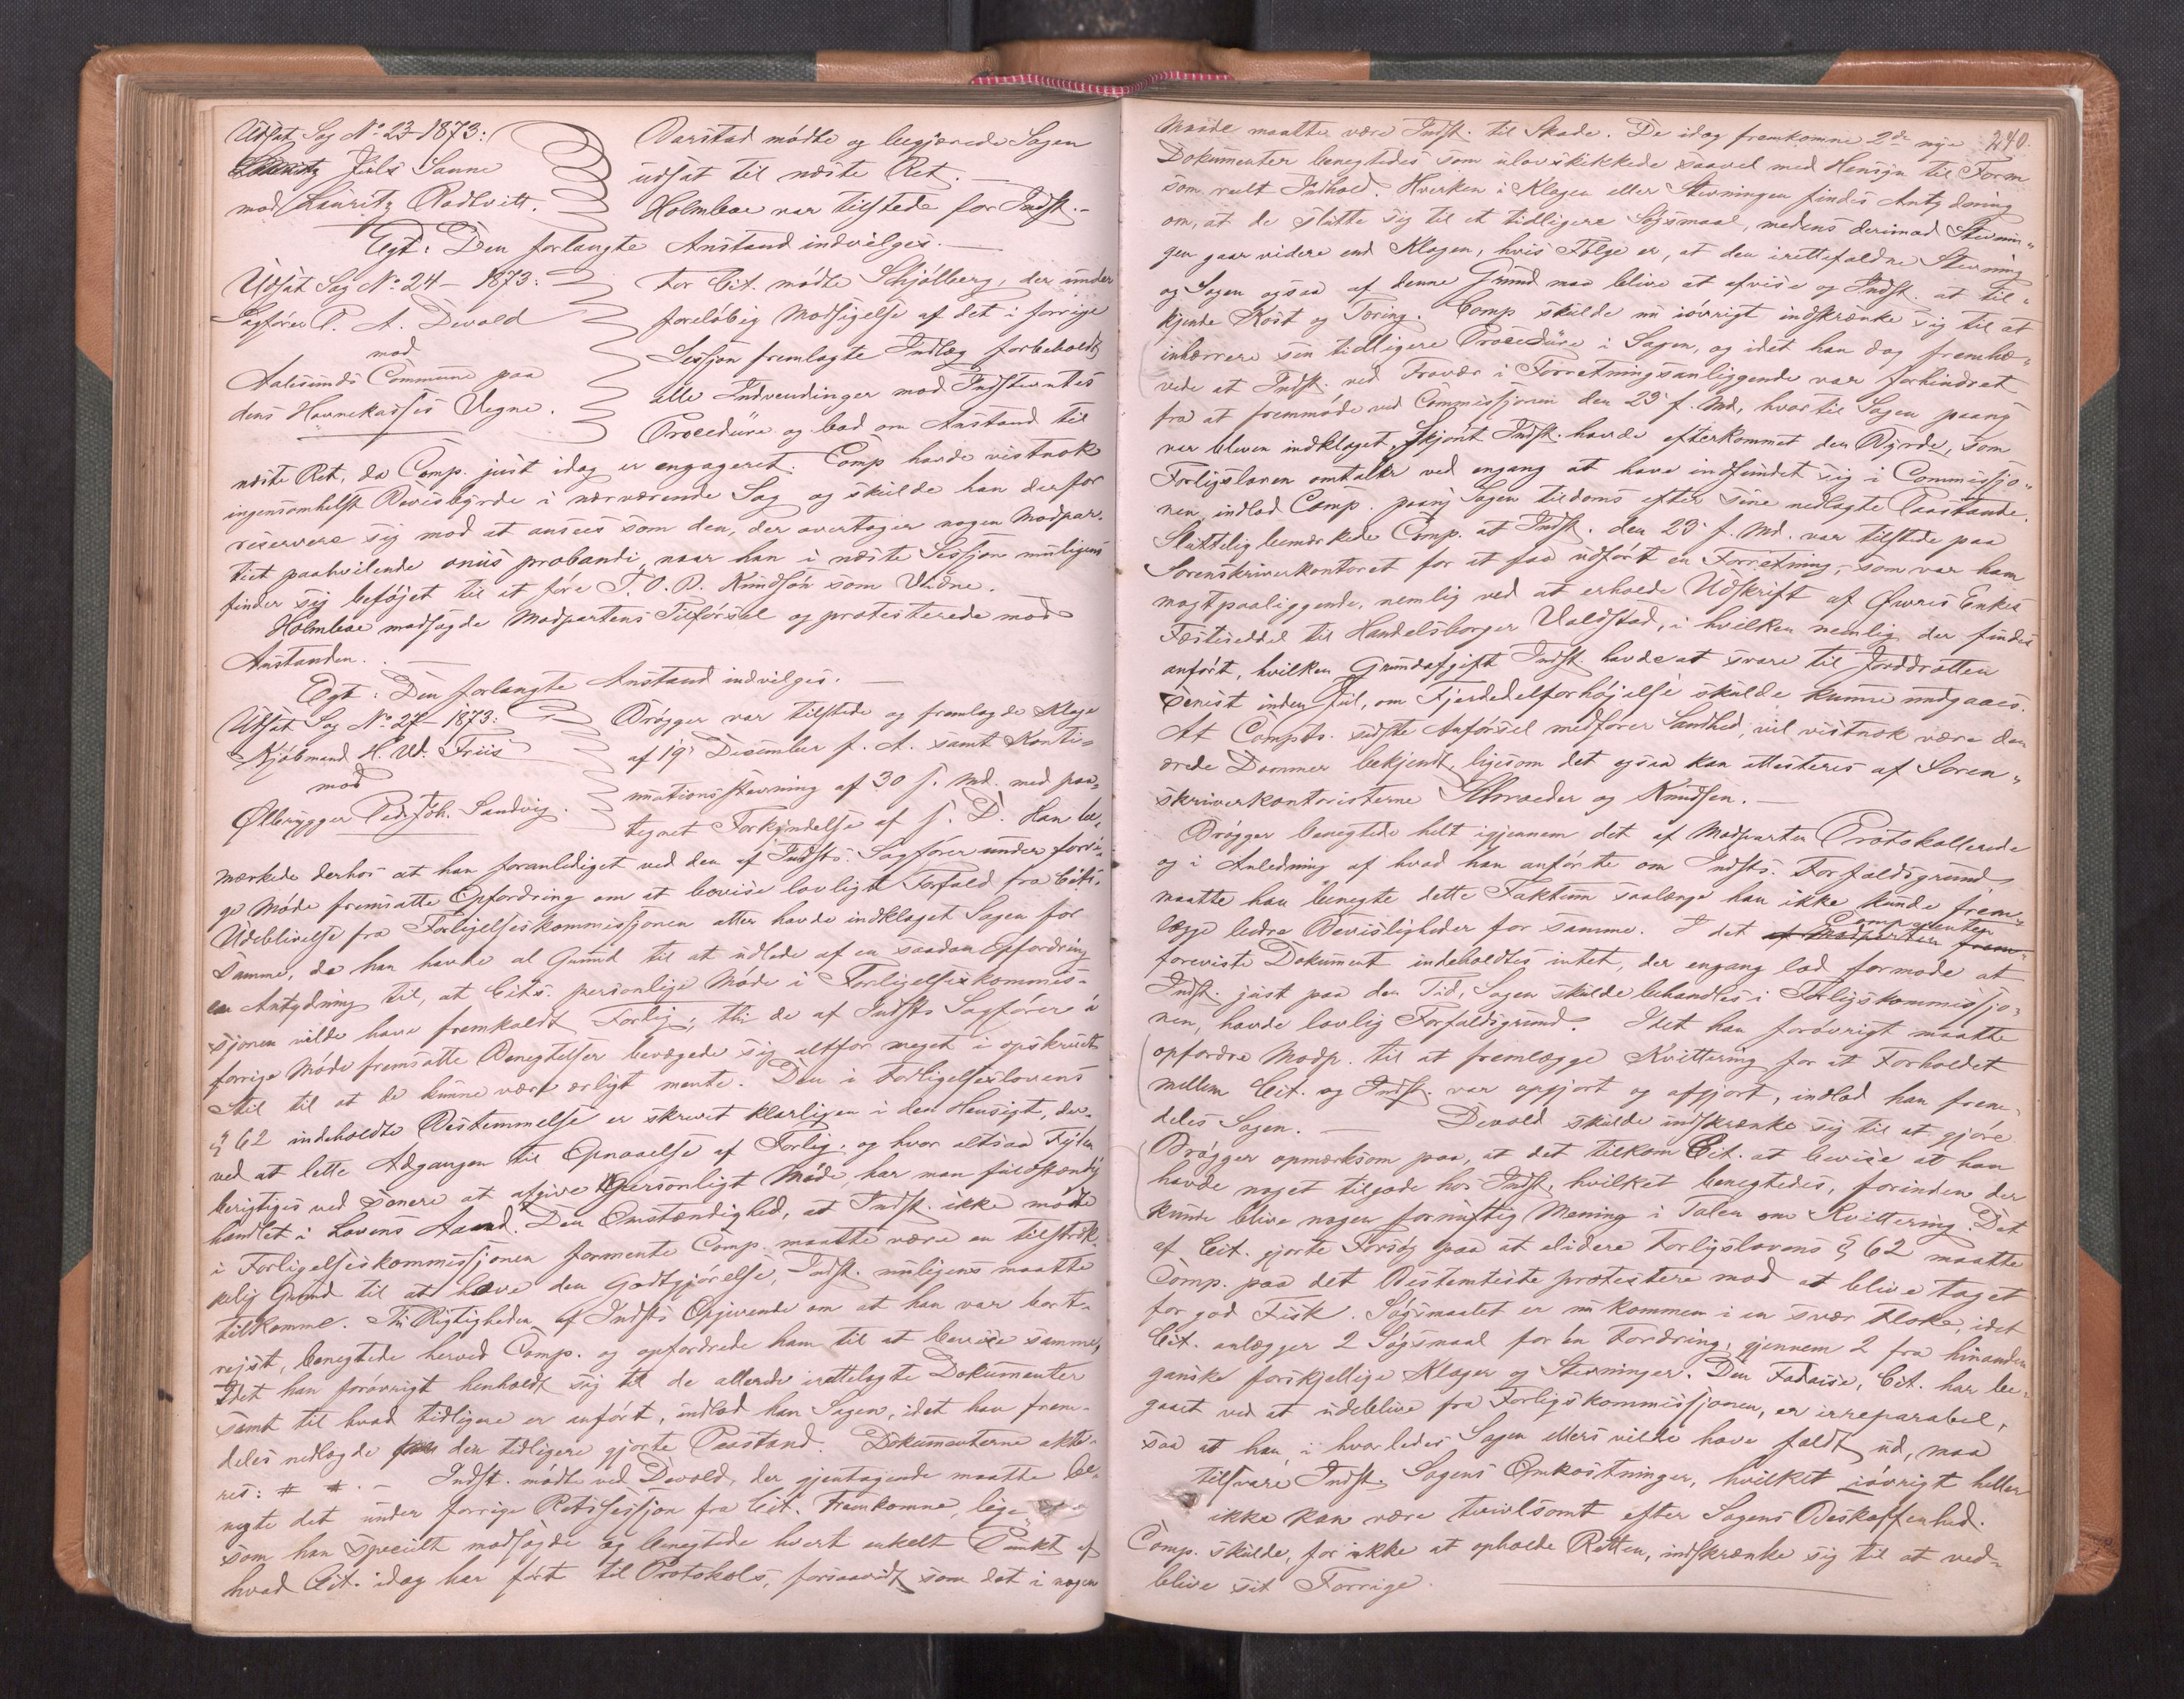 Udsat Sag No. 23-1873:
Lauritz Juls Sanne
mod Lauritz Rodtvitt.
Barstad mødte og begjærede Sagen
udsat til næste Ret.
Holmboe var tilstede for Indst.
Egt: Den forlangte Anstand indvilges.
Udsat Sag No. 24-1873:
Sagfører P. A. Devold
mod
Aalesunds Commune paa
dens Havnekasses Vegne.
For Cit. mødte Schjølberg, der under
foreløbig Modsigelse af det i forrige
Session fremlagte Indlæg forbeholdt
alle Indvendinger mod Indstevntes
Procedüre og bad om Anstand til
næste Ret, da Comp. just idag er engageret. Comp havde vistnok
ingensomhelst Bevisbyrde i nærværende Sag og skulde han derfor
reservere sig mod at ansees som den, der overtager nogen Modpar-
tiet paahvilende onus probandi, naar han i næste Session muligens
finder sig beføjet til at føre T. O. P. Knudsøn som Vidne.
Holmboe modsagde Modpartens Tilførsel og protesterede mod
Anstanden.
Egt: Den forlangte Anstand indvilges.
Udsat Sag No. 27-1873:
Kjøbmand H. Ud. Friis
mod
Ølbrygger Peder Joh. Sandvig.
Brøgger var tilstede og fremlagde Klage
af 19 December f. A. samt Konti-
nuationsstevning af 30 f. Md. med paa-
tegnet Forkyndelse af s. D. Han be-
mærkede derhos at han foranlediget ved den af Indsts. Sagfører under forri-
ge Møde fremsatte Opfordring om at bevise lovligt Forfald fra Cits.
Udeblivelse fra Forligelseskommissjonen atter havde indklaget Sagen for
samme, da han havde al Grund til at udlede af en saadan Opfordring
en Antydning til, at Cits. personlige Møde i Forligelseskommis-
sjonen vilde have fremkaldt Forlig; thi de af Indsts Sagfører i
forrige Møde fremsatte Benegtelser bevægede sig altfor meget i opskruet
Stil til at de kunne være ærligt mente. Den i Forligelseslovens
§ 62 indeholdte Bestemmelse er skrevet klarligen i den Hensigt, der-
ved at lette Adgangen til Opnaaelse af Forlig, og hvor altsaa Fejlen
berigtiges ved senere at afgive personligt Møde, har man fuldstændig
handlet i Lovens Aand. Den Omstændighed, at Indst. ikke mødte
i Forligelseskommissjonen formente Comp. maatte være en tilstræk-
kelig Grund til at hæve den Godtgjørelse, Indst. muligens maatte
tilkomme. Thi Rigtigheden af Indsts Opgivende om at han var bort-
rejst, benegtede herved Comp. og opfordrede ham til at bevise samme,
Idet han forøvrigt henholdt sig til de allerede irettelagte Dokumenter
samt til hvad tidligere er anført, indlod han Sagen, idet han frem-
deles nedlagde den tidligere gjorte Paastand. Dokumenterne akte-
res: # #. - Indst. mødte ved Devold, der gjentagende maatte be-
negte det under forrige Retssession fra Cit. Fremkomne, lige
som han specielt modsagde og benegtede hvert enkelt Punkt af
hvad Cit. idag har ført til Protokols, forsaavidt som det i nogen
240.
Maade maatte være Indst. til Skade. De idag fremkomne 2de nye
Dokumenter benegtedes som ulovskikkede saavel med Hensyn til Form
som reelt Indhold. Hverken i Klagen eller Stevningen findes Antydning
om, at de slutte sig til et tidligere Søgsmaal, medens derimod Stevnin-
gen gaar videre end Klagen, hvis Følge er, at den irettefaldne Stevning
og Sagen ogsaa af denne Grund maa blive at afvise og Indst. at til-
kjende Kost og Tæring. Comp skulde nu iøvrigt indskrænke sig til at
inhærere sin tidligere Procedüre i Sagen, og idet han dog fremhæ-
vede at Indst. ved Fravær i Forretningsanliggende var forhindret
fra at fremmøde ved Commissjonen den 23' f. Md, hvortil Sagen paany
var bleven indklaget, skjønt Indst. havde efterkommet den Byrde, som
Forligsloven omtaler ved engang at have indfundet sig i Commissjo-
nen, indlod Comp. paany Sagen tildoms efter sine nedlagte Paastande.
Sluttelig bemærkede Comp. at Indst. den 23' f. Md. var tilstede paa
Sorenskriverkontoret for at faa udført en Forretning, som var ham
magtpaaliggende, nemlig ved at erholde Udskrift af Øwres Enkes
Fæsteseddel til Handelsborger Valdstad, i hvilken nemlig der findes
anført, hvilken Grundafgift Indst. havde at svare til Jorddrotten
senest inden Jul, om Fjerdedelforhøjelse skulde kunne undgaaes.
At Compts. sidste Anførsel medfører Sandhed, vil vistnok være den
ærede Dommer bekjendt, ligesom det ogsaa kan attesteres af Soren-
skriverkontoristerne Schrøeder og Knudsen.
Brøgger benegtede helt igjennem det af Modparten Protokollerede
og i Anledning af hvad han anførte om Indsts. Forfaldsgrund
maatte han benegte dette Faktum saalænge han ikke kunde frem-
lægge bedre Bevisligheder for samme. I det af Modparten frem- Comparenten
foreviste Dokument indeholdtes intet, der engang lod formode at
Indst. just paa den Tid, Sagen skulde behandles i Forligskommissjo-
nen, havde lovlig Forfaldsgrund. Idet han forøvrigt maatte
opfordre Modp. til at fremlægge Kvittering for at Forholdet
mellem Cit. og Indst. var opgjort og afgjort, indlod han frem-
deles Sagen. - Devold skulde indskrænke sig til at gjøre
Brøgger opmærksom paa, at det tilkom Cit. at bevise at han
havde noget tilgode hos Indst, hvilket benegtedes, forinden der
kunde blive nogen fornuftig Mening i Talen om Kvittering. Det
af Cit. gjorte Forsøg paa at elidere Forligslovens § 62 maatte
Comp. paa det Bestemteste protestere mod at blive taget
for god Fisk. Søgsmaalet er nu kommen i en svær Floke, idet
Cit. anlægger 2 Søgsmaal for én Fordring, gjennem 2 fra hinanden
ganske forskjellige Klager og Stevninger. Den Fadaise, Cit. har be-
gaaet ved at udeblive fra Forligskommissjonen, er irreparabel,
saa at han, i hvorledes Sagen ellers vilde have faldt ud, maa
tilsvare Indst. Sagens Omkostninger, hvilket iøvrigt heller
ikke kan være tvivlsomt efter Sagens Beskaffenhed.
Comp. skulde, for ikke at opholde Retten, indskrænke sig til at ved-
blive sit Forrige.